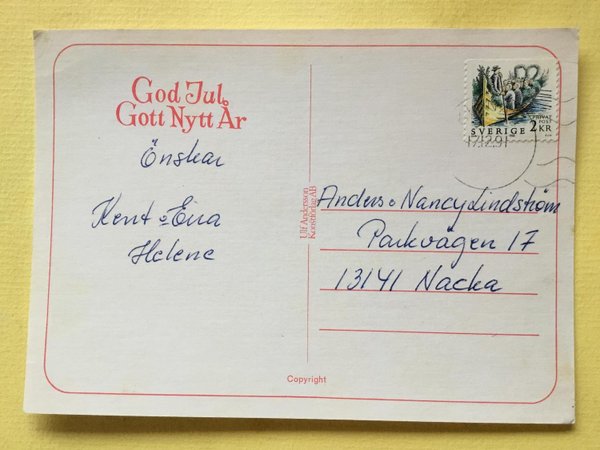 God Jul
Gott Nytt År
Önskar
Kent o Eva
Helene
Ulf Andersson
Konstförlag AB
PRIVAT
POST
SVERIGE 2 KR
17.12.91
Anders o Nancy Lindström
Parkvägen 17
13141 Nacka
Copyright